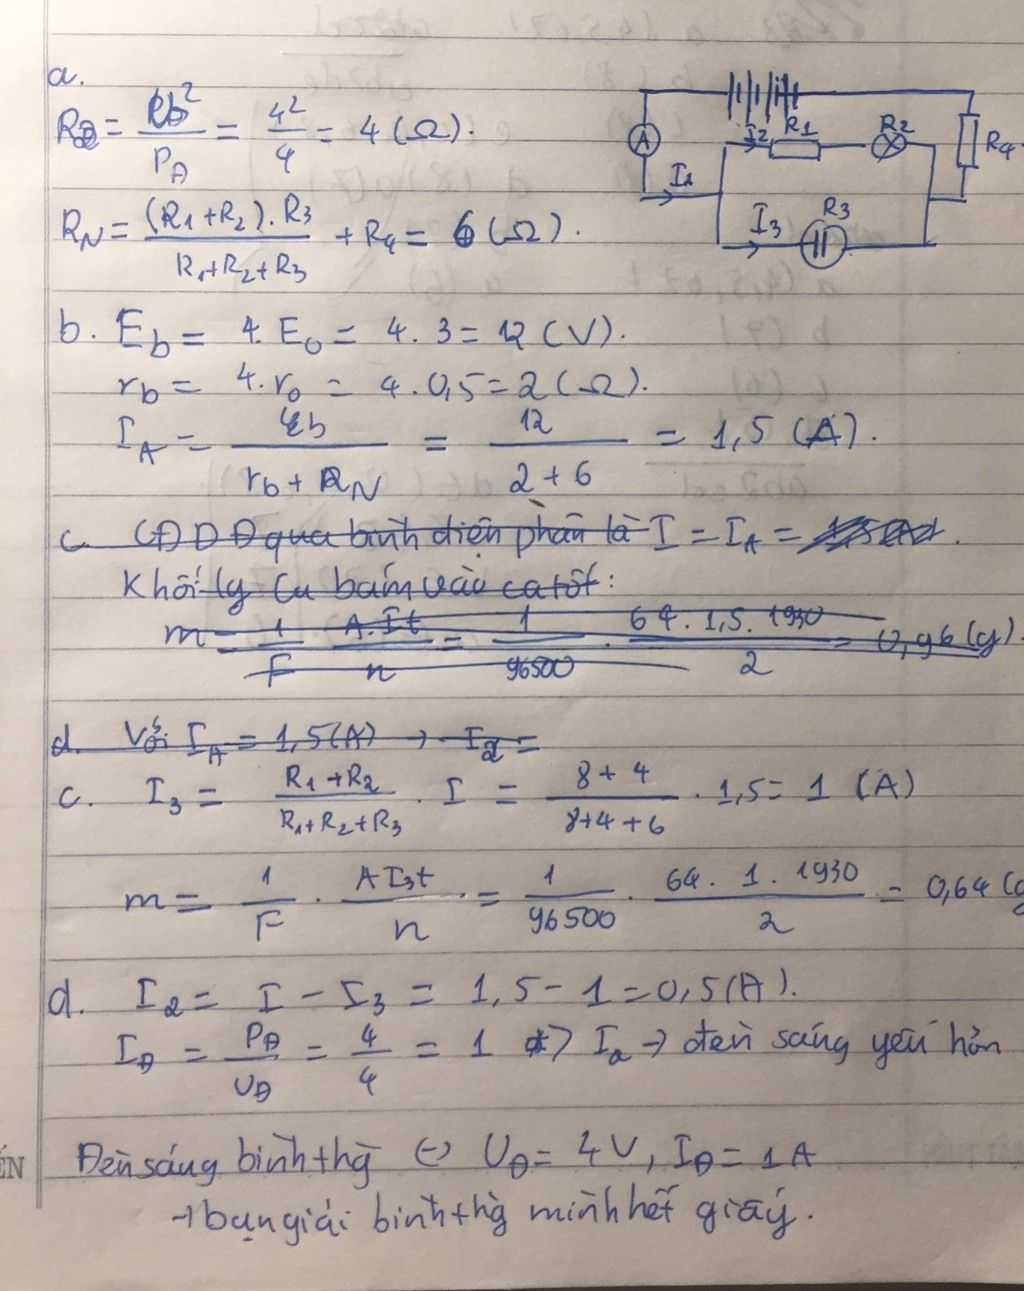 a.
RĐ = Uđ² / PĐ = 4² / 4 = 4 (Ω).
RN = (R1+R2). R3 / R1+R2+R3 + R4 = 6 (Ω).
A I2 R1 R2 R4
I1 I3 R3
b. Eb = 4. E0 = 4. 3 = 12 (V).
rb = 4. r0 = 4. 0,5 = 2 (Ω).
IA = Eb / rb + RN = 12 / 2 + 6 = 1,5 (A).
c. CĐDĐ qua bình điện phân là I = IA =
Khối lg Cu bám vào catốt:
m = 1 / F A.It / n = 1 / 96500 . 64. 1,5. 1930 / 2 = 0,96 (g).
d. Với IA = 1,5(A) → I2 =
c. I3 = R1 + R2 / R1+R2+R3 . I = 8 + 4 / 8+4+6 . 1,5 = 1 (A)
m = 1 / F . A I3t / n = 1 / 96500 . 64. 1. 1930 / 2 = 0,64 (g
d. I2 = I - I3 = 1,5 - 1 = 0,5 (A).
IĐ = PĐ / UĐ = 4 / 4 = 1 > I2 → đèn sáng yếu hơn
ẾN
Đèn sáng bình thg ⇔ UĐ = 4V, IĐ = 1A
→ bạn giải bình thg mình hết giấy.